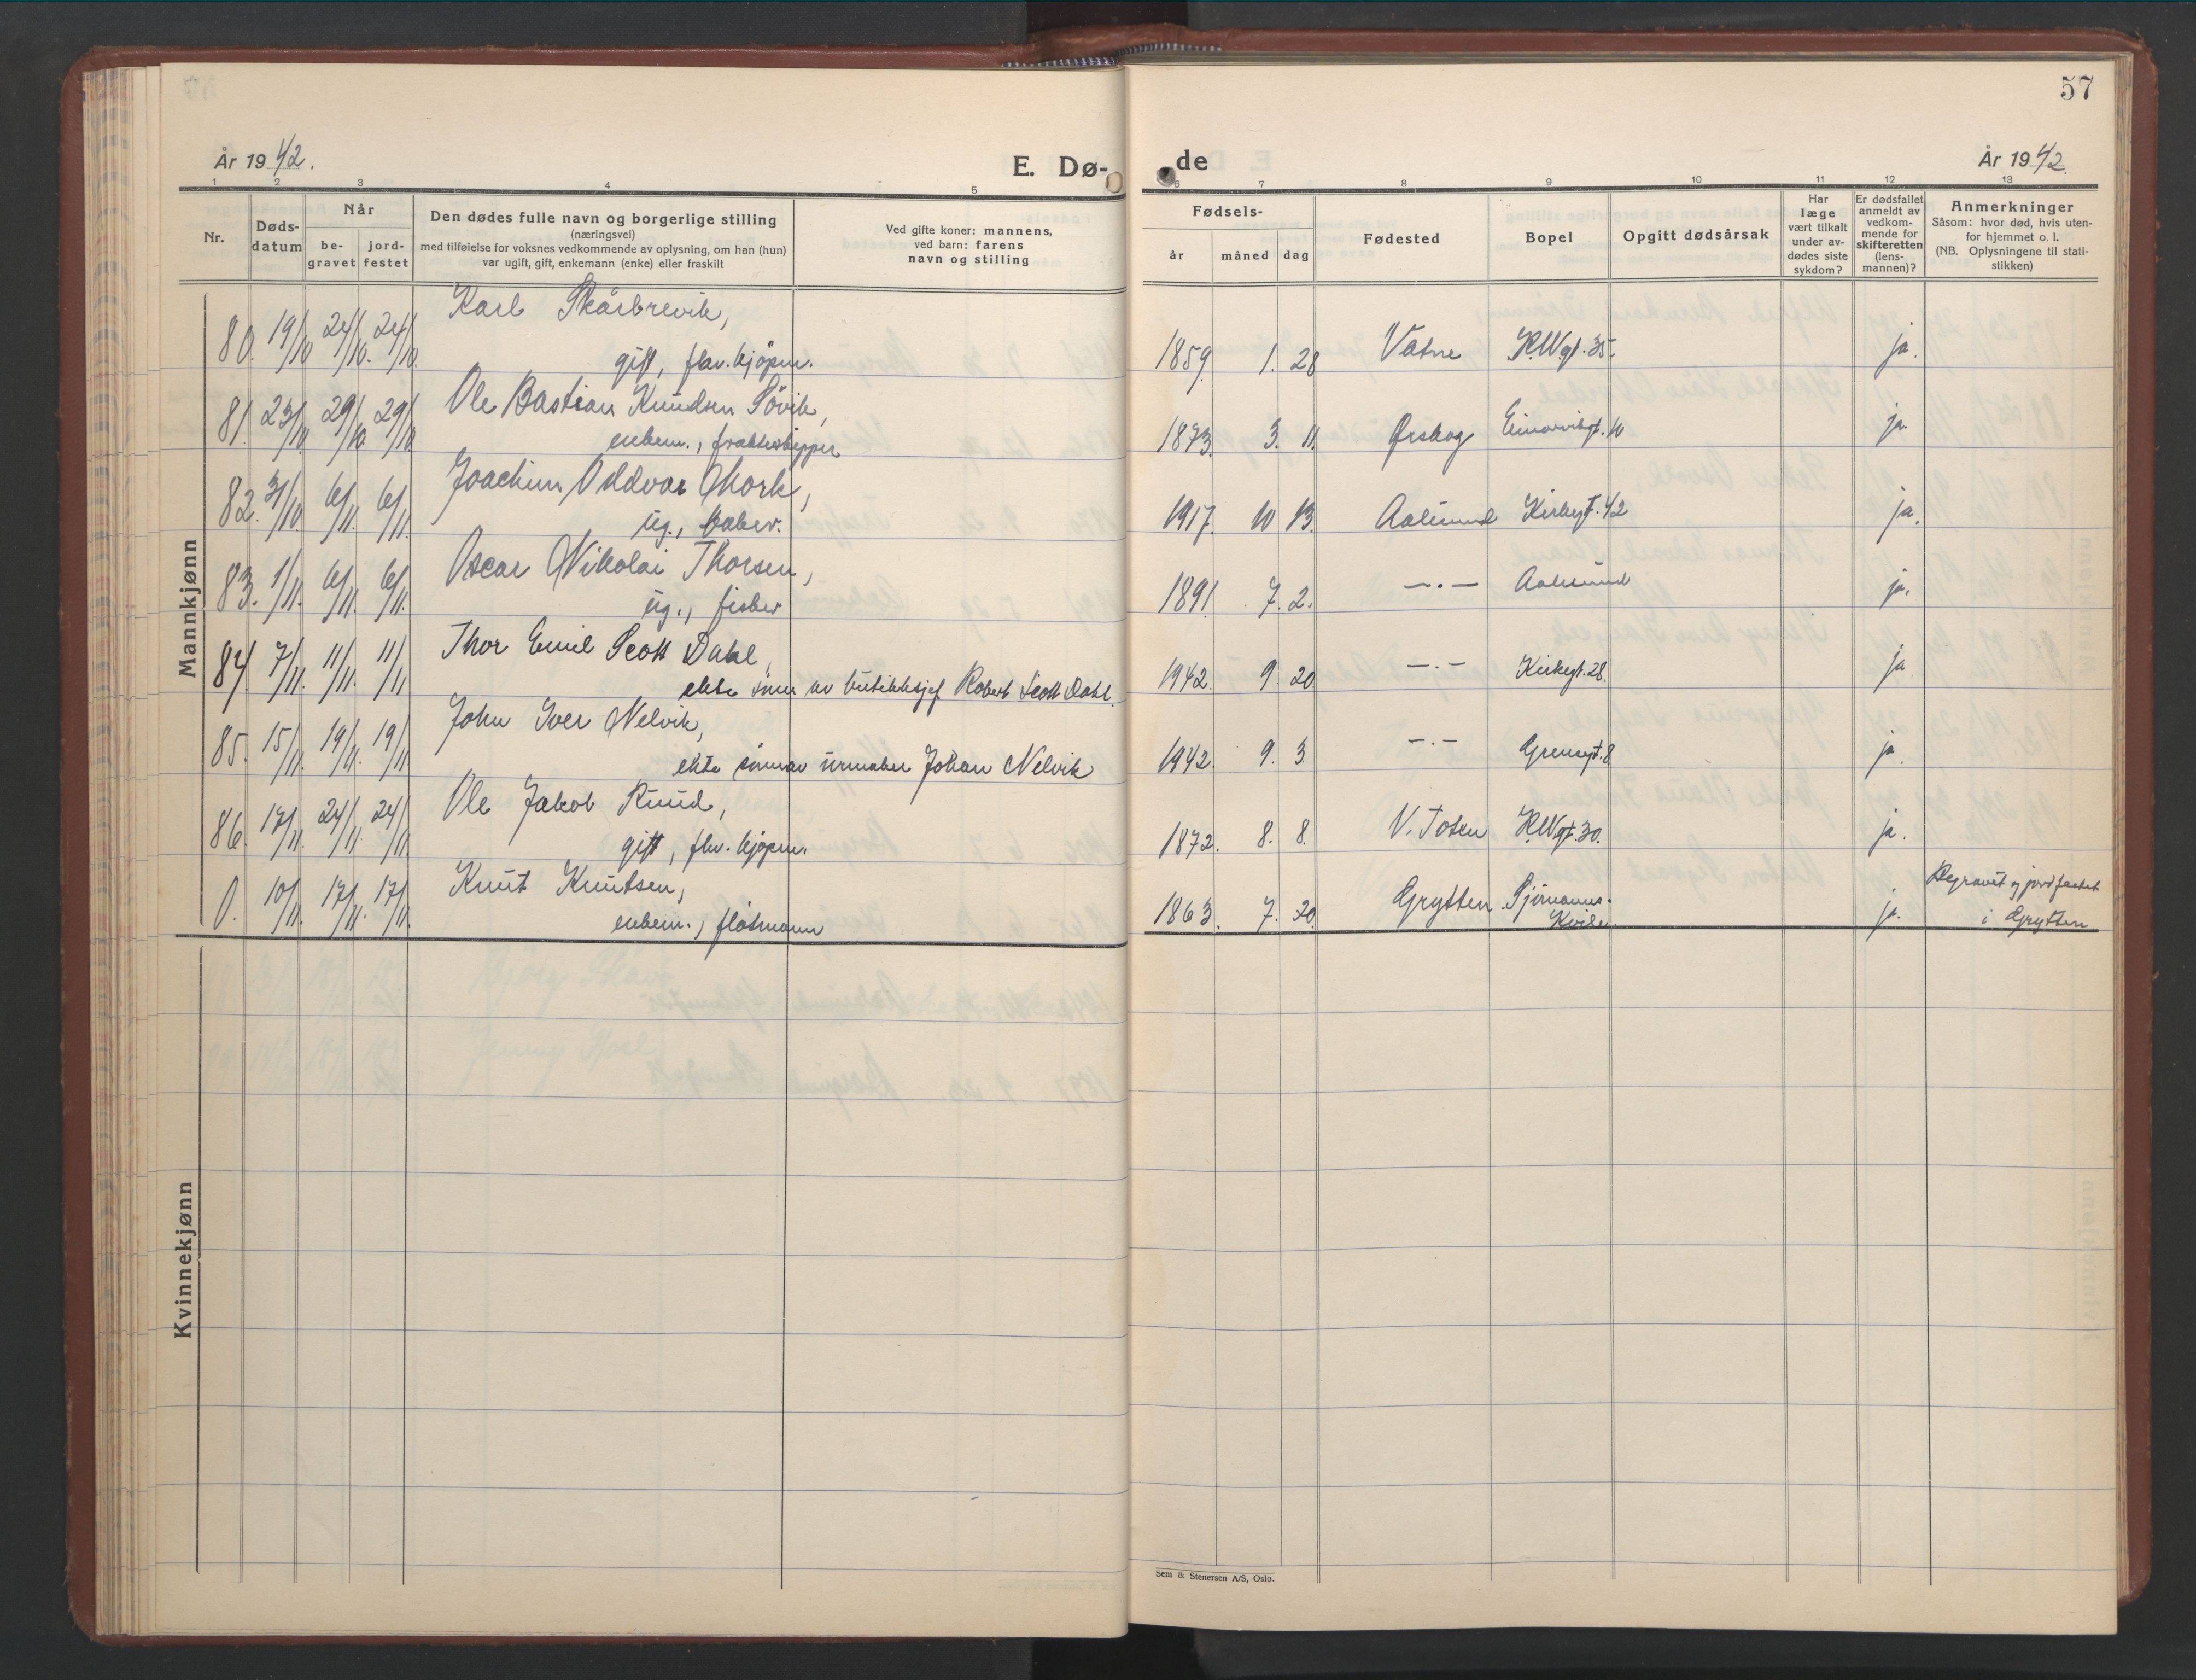 57
År 1942.
E. Dø-
de
År 1942.
1 2 3 4 5 6 7 8 9 10 11 12 13
Nr.
Døds-
datum
Når
be-
gravet
jord-
festet
Den dødes fulle navn og borgerlige stilling
(næringsvei)
med tilføielse for voksnes vedkommende av oplysning, om han (hun)
var ugift, gift, enkemann (enke) eller fraskilt
Ved gifte koner: mannens,
ved barn: farens
navn og stilling
Fødsels-
år måned dag
Fødested
Bopel
Opgitt dødsårsak
Har
læge
vært tilkalt
under av-
dødes siste
sykdom?
Er dødsfallet
anmeldt av
vedkom-
mende for
skifteretten
(lens-
mannen)?
Anmerkninger
Såsom: hvor død, hvis uten-
for hjemmet o. l.
(NB. Oplysningene til stati-
stikken)
Mannkjønn
Karl Skårbrevik,
80. 19/10 24/10. 24/10. gift, fhv. kjøpm. 1859. 1. 28 Vatne K.W.gt. 35. ja.
Ole Bastian Knudsen Søvik,
81. 23/10. 29/10. 29/10. enkem., frakteskipper 1873. 3. 11. Ørskog gt. 10 ja.
Joachim Oddvar Mork,
82. 31/10. 6/11. 6/11. ug., 1917. 10 13. Aalesund Kirkegt. 42 ja.
Oscar Nikolai Thorsen,
83. 1/11. 6/11. 6/11. ug., fisker 1891. 7. 2. —·— Aalesund ja.
Thor Emil Scott Dahl,
84. 7/11. 11/11. 11/11 ekte sønn av butikksjef Robert Scott Dahl. 1942. 9. 20. —·— Kirkegt. 28. ja
John Iver Nelvik,
85. 15/11. 19/11. 19/11. ekte sønn av urmaker Johan Nelvik 1942. 9. 3. —·— Grensegt. 8 ja.
Ole Jakob Ruud,
86. 17/11. 24/11. 24/11. gift, fhv. kjøpm. 1872. 8. 8. V. Toten K.W.gt. 30. ja.
Knut Knutsen,
0. 10/11. 17/11. 17/11. enkem., flåtmann 1863. 7. 20. Grytten Sjømanns-
Kvile. ja. Begravet og jordfestet
i Grytten
Kvinnekjønn
Sem & Stenersen A/S, Oslo.